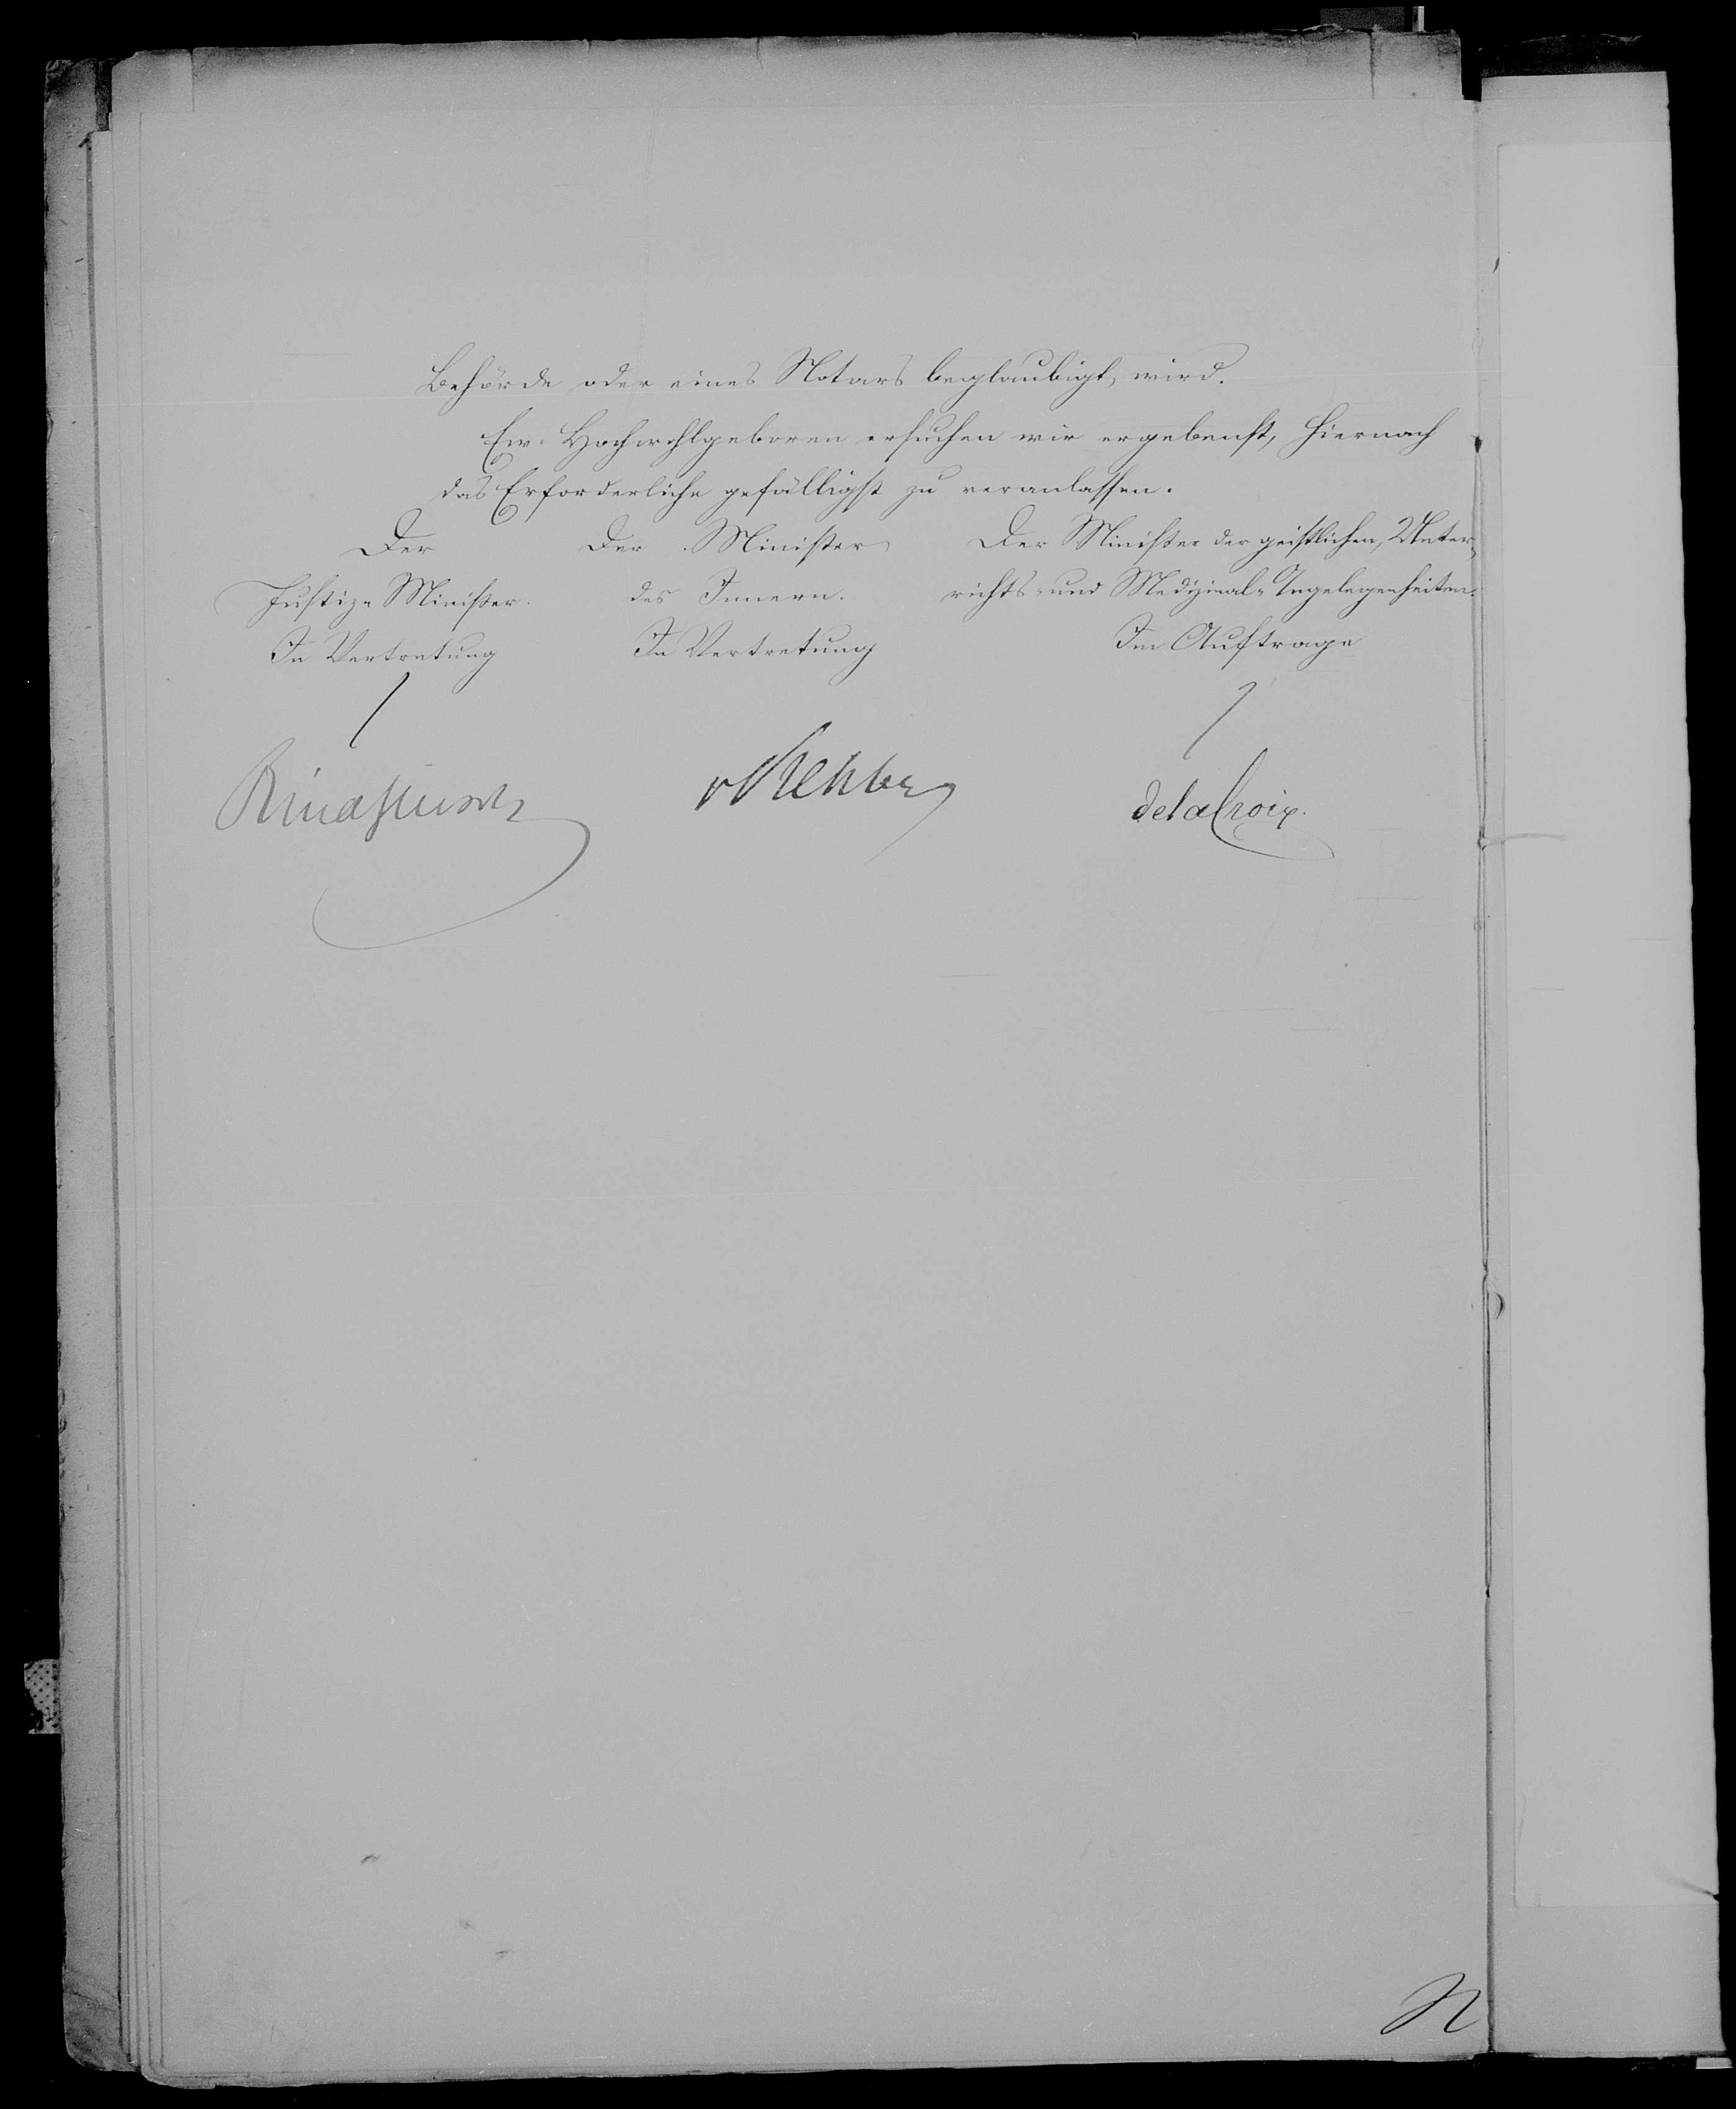 Behörde oder eines Notars beglaubigt, wird.
Ew. Hochwohlgeboren ersuchen wir ergebenst, hiernach
das Erforderliche gefälligst zu veranlassen.
Der
Justiz-Minister.
In Vertretung
Der Minister
des Innern.
In Vertretung
Der Minister der geistlichen, Unter-
richts- und Medizinal-Angelegenheiten.
Im Auftrage
de la Croix.